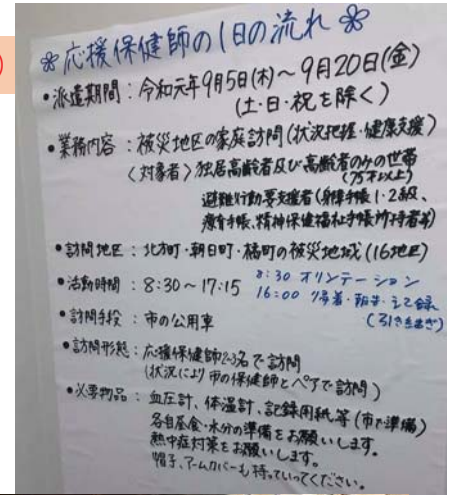 )
❀応援保健師の1日の流れ❀
•派遣期間：令和元年9月5日(木)～9月20日(金)
(土・日・祝を除く)
•業務内容：被災地区の家庭訪問(状況把握・健康支援)
〈対象者〉独居高齢者及び高齢者のみの世帯
(75才以上)
避難行動要支援者(身障手帳1・2級、
療育手帳、精神保健福祉手帳所持者等)
•訪問地区：北方町・朝日町・橘町の被災地域(16地区)
•活動時間：8:30～17:15
8:30 オリンテーション
16:00 帰着・報告・記録
(引き継ぎ)
•訪問手段：市の公用車
•訪問形態：応援保健師2~3名で訪問
(状況により市の保健師とペアで訪問)
•必要物品：血圧計、体温計、記録用紙等(市で準備)
各自昼食・水分の準備をお願いします。
熱中症対策をお願いします。
帽子、アームカバーも持っていってください。